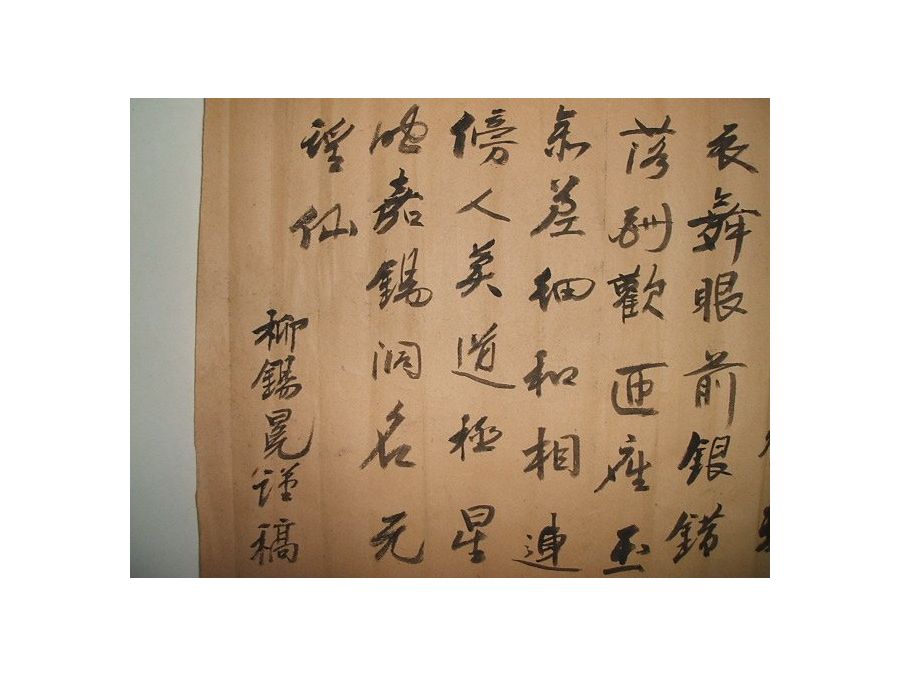 衣舞眼前銀錯
落酬歡匝座玉
參差細和相連
傍人莫道極星
嘉錫洞名元
仙
柳錫謹稿